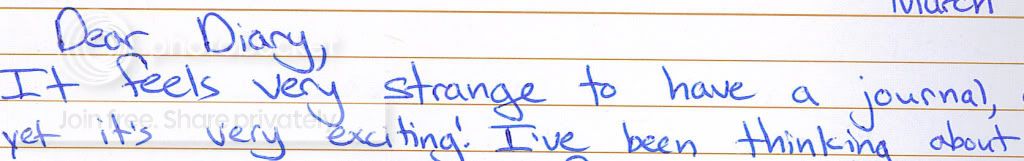 March
Dear Diary,
It feels very strange to have a journal,
yet it's very exciting! I've been thinking about
Join free. Share privately